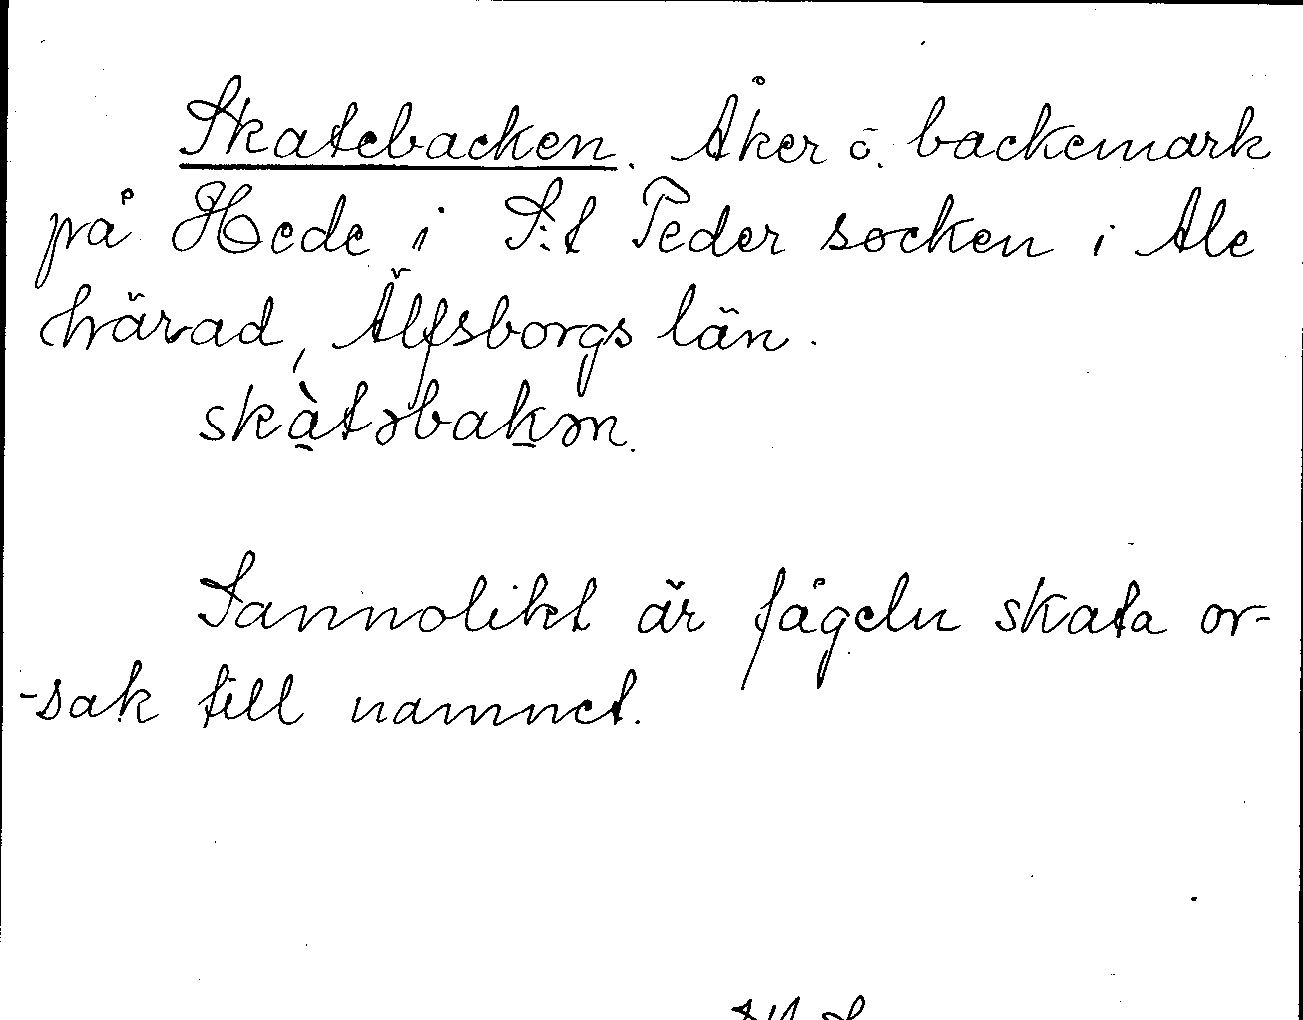 Skatebacken. Åker o. backemark
på Hede i S:t Peder socken i Ale
härad, Älfsborgs län.
skàtəbakən.
Sannolikt är fågeln skata or-
-sak till namnet.